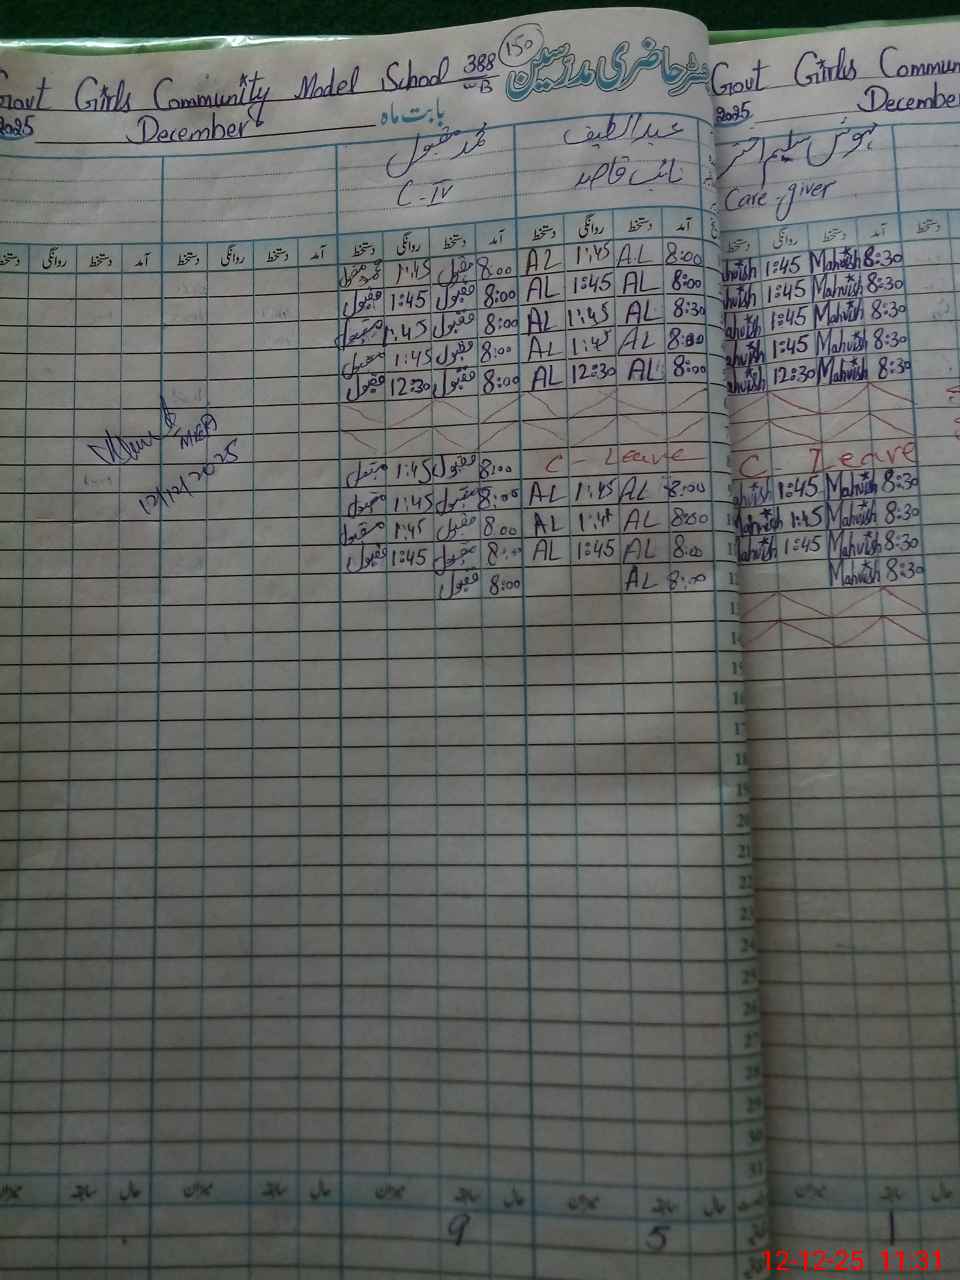 Govt Girls Community Model School 388/W-B
150
رجسٹر حاضری مدرسین
Govt Girls Commun
2025 December بابت ماہ
2025 December
محمد مقبول عبدالطیف
C-IV نائب قاصد
Care-giver
دستخط روانگی دستخط آمد دستخط روانگی دستخط آمد دستخط روانگی دستخط آمد دستخط روانگی دستخط آمد
محمد مقبول 1:45 مقبول 8:00 AL 1:45 AL 8:00 1:45 Mahvish 8:30
مقبول 1:45 مقبول 8:00 AL 1:45 AL 8:00 1:45 Mahvish 8:30
مقبول 1:45 مقبول 8:00 AL 1:45 AL 8:30 1:45 Mahvish 8:30
مقبول 1:45 مقبول 8:00 AL 1:45 AL 8:00 1:45 Mahvish 8:30
مقبول 12:30 مقبول 8:00 AL 12:30 AL 8:00 12:30 Mahvish 8:30
مقبول 1:45 مقبول 8:00 C - Leave C - Leave
مقبول 1:45 مقبول 8:00 AL 1:45 AL 8:00 1:45 Mahvish 8:30
مقبول 1:45 مقبول 8:00 AL 1:45 AL 8:00 Mahvish 1:45 Mahvish 8:30
مقبول 1:45 مقبول 8:00 AL 1:45 AL 8:00 Mahvish 1:45 Mahvish 8:30
مقبول 8:00 AL 8:00 Mahvish 8:30
12/12/2025
13
14
15
16
17
18
19
20
21
22
23
24
25
26
27
28
29
30
31
میزان سابقہ حال میزان سابقہ حال میزان سابقہ حال میزان سابقہ حال
9 5 1
12-12-25 11:31